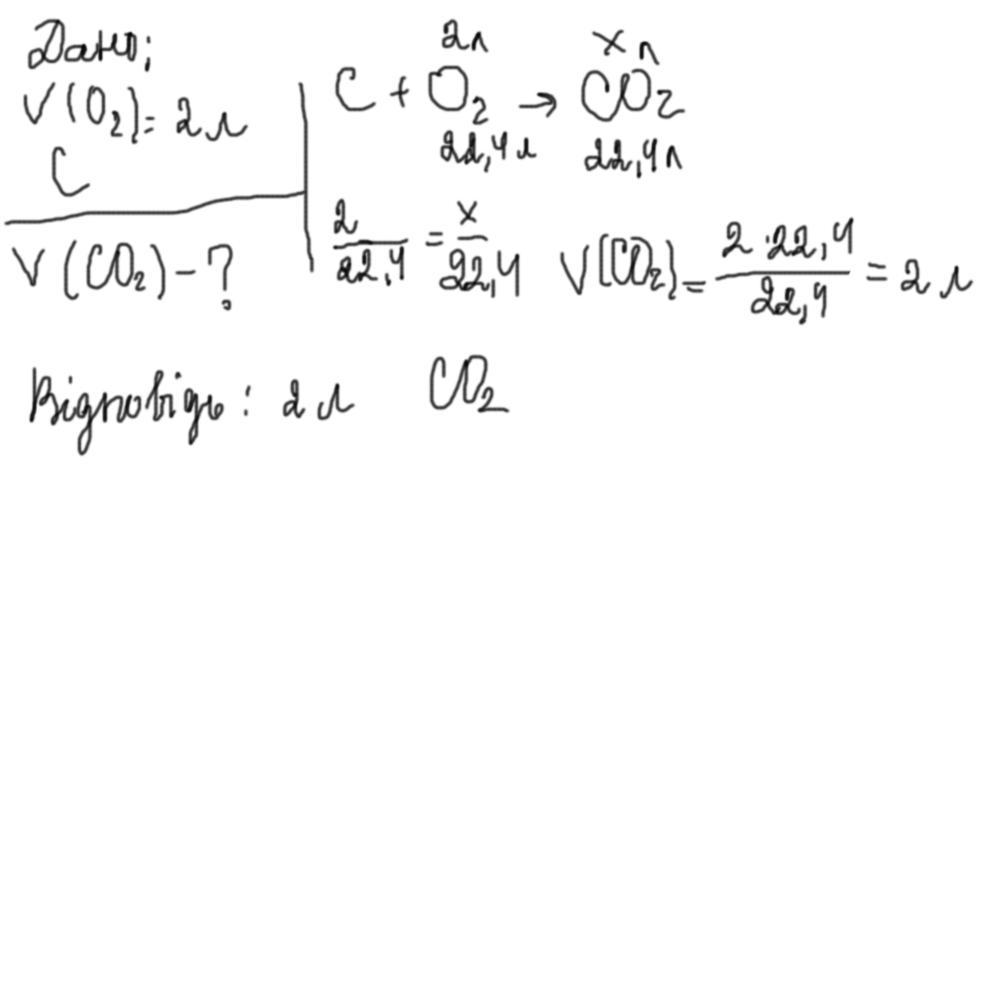 Дано:
V(O₂) = 2 л
C
V(CO₂) - ?
2л x л
C + O₂ → CO₂
22,4 л 22,4 л
2/22,4 = x/22,4 V(CO₂) = 2·22,4/22,4 = 2 л
Відповідь: 2 л CO₂